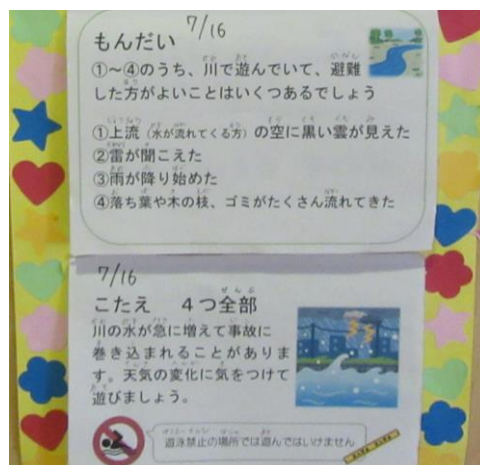 7/16
もんだい
①～④のうち、川で遊んでいて、避難
した方がよいことはいくつあるでしょう
①上流（水が流れてくる方）の空に黒い雲が見えた
②雷が聞こえた
③雨が降り始めた
④落ち葉や木の枝、ゴミがたくさん流れてきた
7/16
こたえ　４つ全部
川の水が急に増えて事故に
巻き込まれることがありま
す。天気の変化に気をつけて
遊びましょう。
遊泳禁止の場所では遊んではいけません